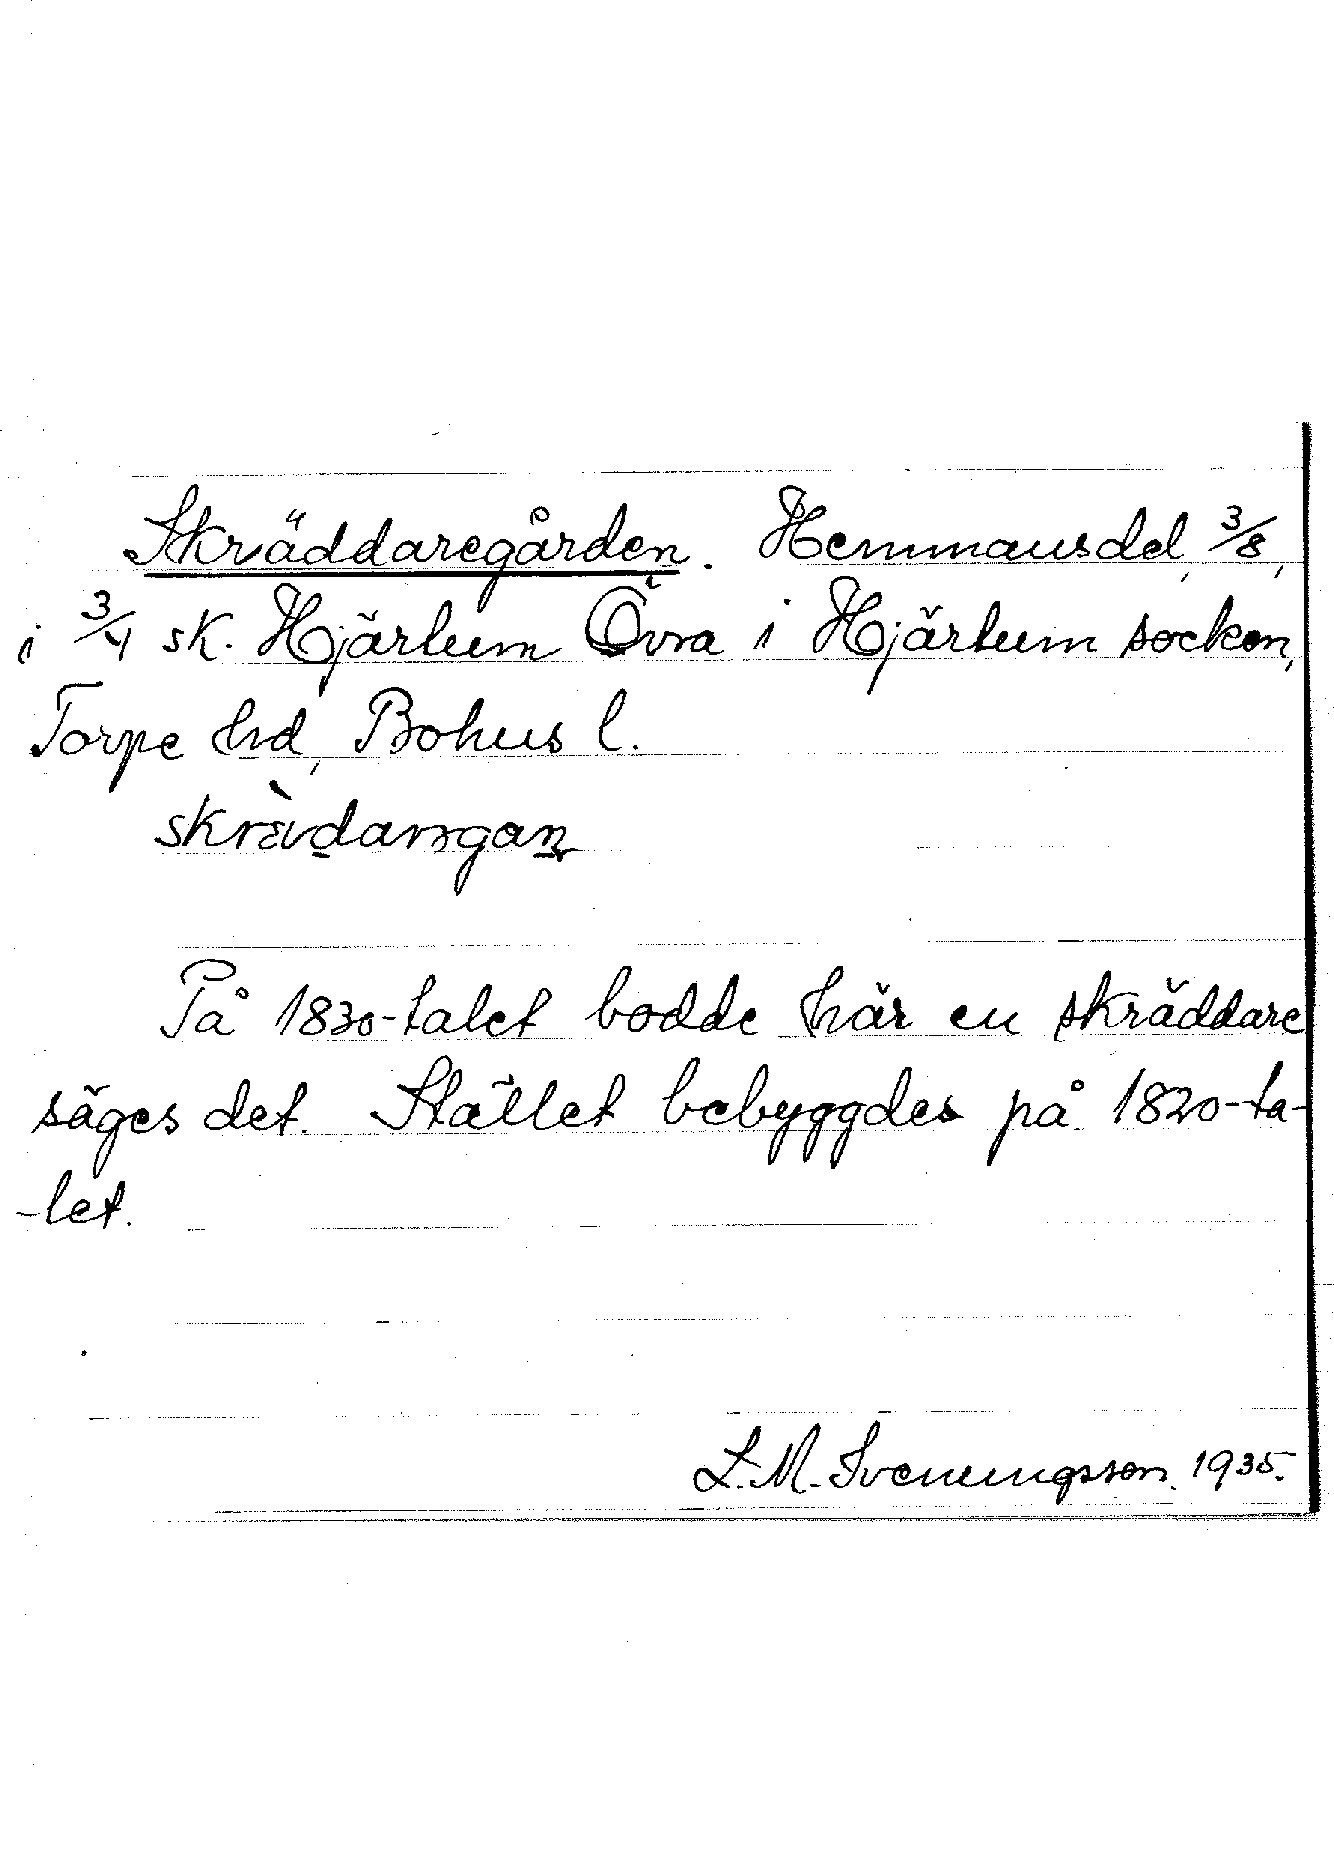 Skräddaregården. Hemmansdel, 3/8,
i 3/4 sk. Hjärtum Övra i Hjärtum socken,
Torpe hd, Bohus l.
På 1830-talet bodde här en skräddare
säges det. Stället bebyggdes på 1820-ta-
-let.
L. M. Svenungsson. 1935.